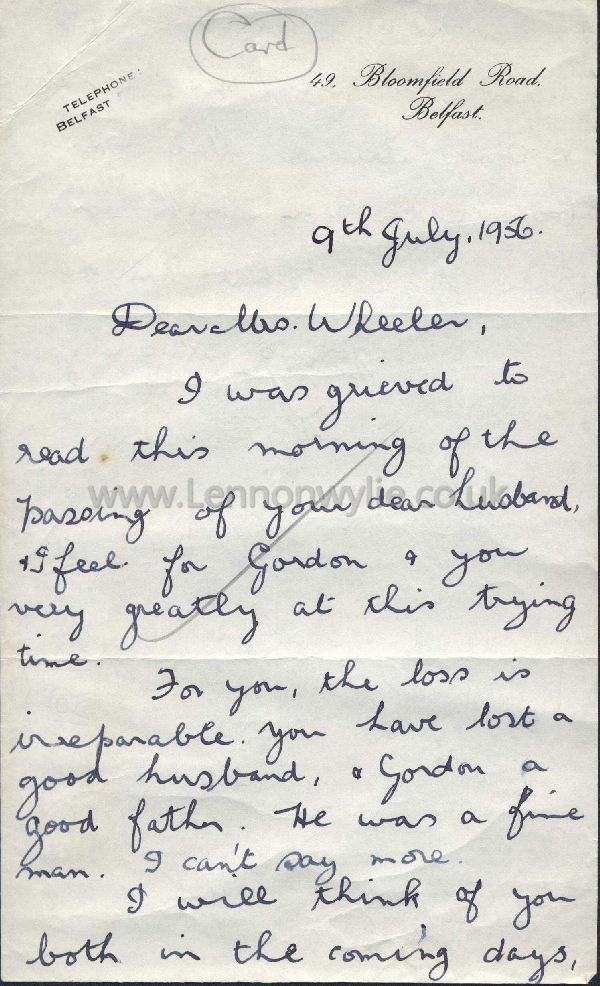 Card
TELEPHONE:
BELFAST
49, Bloomfield Road,
Belfast.
9th July, 1956.
Dear Mrs. Wheeler,
I was grieved to
read this morning of the
passing of your dear husband,
& I feel for Gordon & you
very greatly at this trying
time.
For you, the loss is
irreparable. You have lost a
good husband, & Gordon a
good father. He was a fine
man. I can't say more.
I will think of you
both in the coming days,
www.Lennonwylie.co.uk